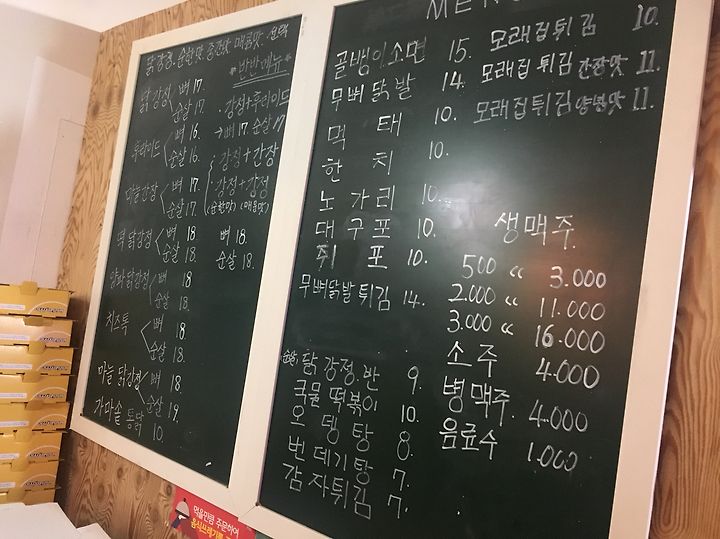 닭강정. 순한맛. 중간맛. 매콤맛. 선택
닭강정 뼈 17.
순살 17.
후라이드 뼈 16.
순살 16.
마늘간장 뼈 17.
순살 17.
떡 닭강정 뼈 18.
순살 18
양파닭강정 뼈 18
순살 18
치즈톡 뼈 18
순살 18.
마늘 닭강정 뼈 18
순살 19.
가마솥 통닭 10.
반반메뉴
강정+후라이드
뼈 17. 순살 17
강정+간장
강정+강정
(순한맛) (매운맛)
뼈 18.
순살 18.
MENU
골뱅이소면 15.
무뼈닭발 14.
먹태 10.
한치 10.
노가리 10.
대구포 10.
쥐포 10.
무뼈닭발튀김 14.
순살 닭강정.반 9.
국물떡볶이 10.
오뎅탕 8
번데기탕 7.
감자튀김 7.
모래집튀김 10.
모래집튀김 간장맛 11.
모래집튀김 양념맛 11.
생맥주
500 " 3.000
2.000 " 11.000
3.000 " 16.000
소주 4.000
병맥주. 4.000
음료수 1.000
먹을만큼 주문하여